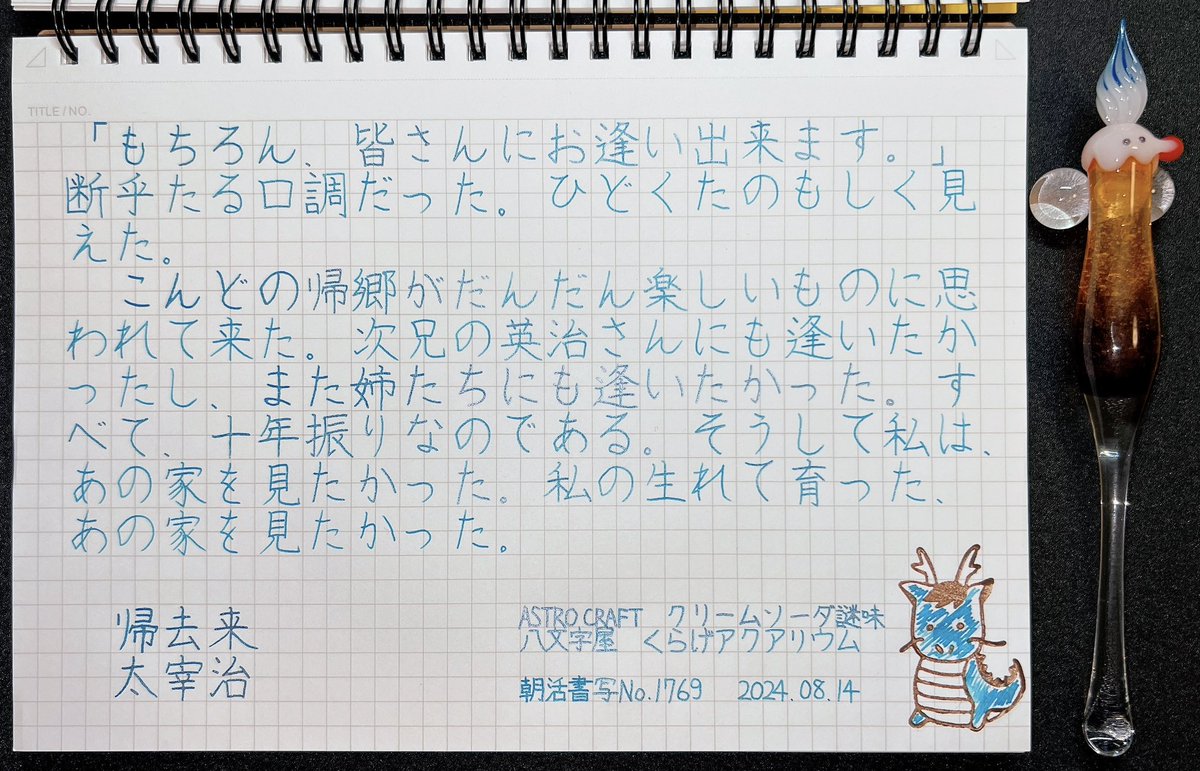 TITLE / NO.
「もちろん、皆さんにお逢い出来ます。」
断乎たる口調だった。ひどくたのもしく見
えた。
こんどの帰郷がだんだん楽しいものに思
われて来た。次兄の英治さんにも逢いたか
ったし、また姉たちにも逢いたかった。す
べて、十年振りなのである。そうして私は、
あの家を見たかった。私の生れて育った、
あの家を見たかった。
帰去来
太宰治
ASTRO CRAFT クリームソーダ謎味
八文字屋 くらげアクアリウム
朝活書写No.1769 2024.08.14